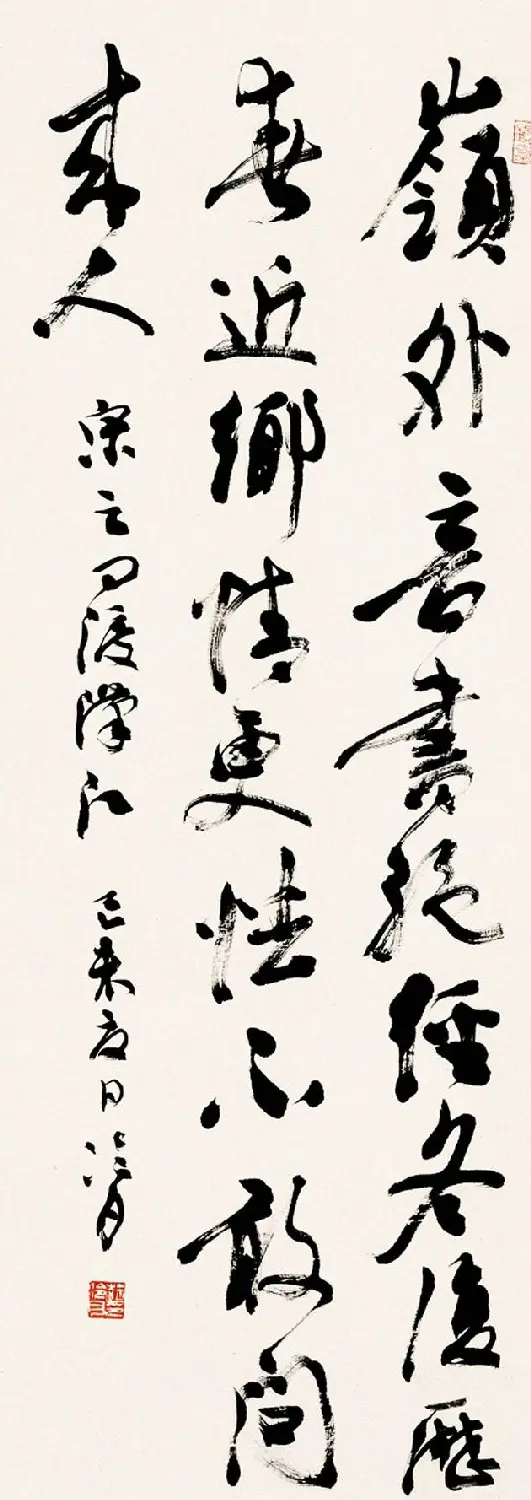 嶺外音書絕經冬復歷
春近鄉情更怯不敢問
来人
宋之问渡漢江 己未夏日 冷月